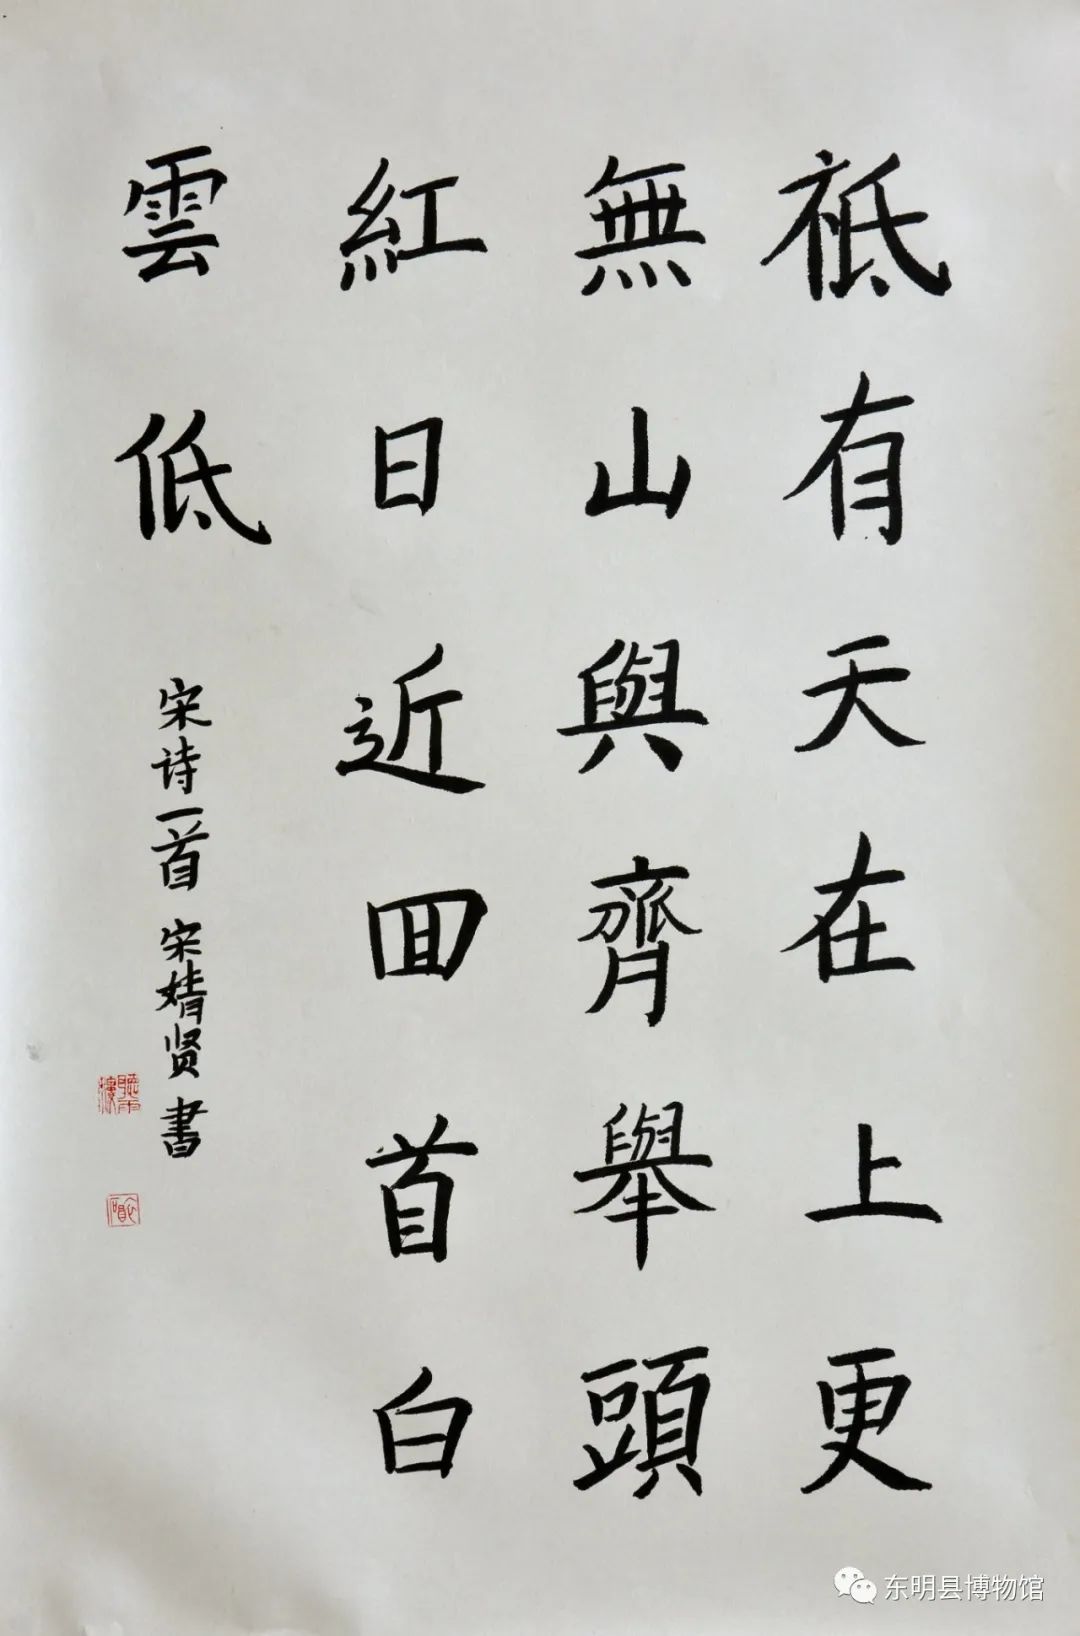 祗有天在上更
無山與齊舉頭
紅日近回首白
雲低
宋诗一首 宋婧贤書
聽雨樓
东明县博物馆